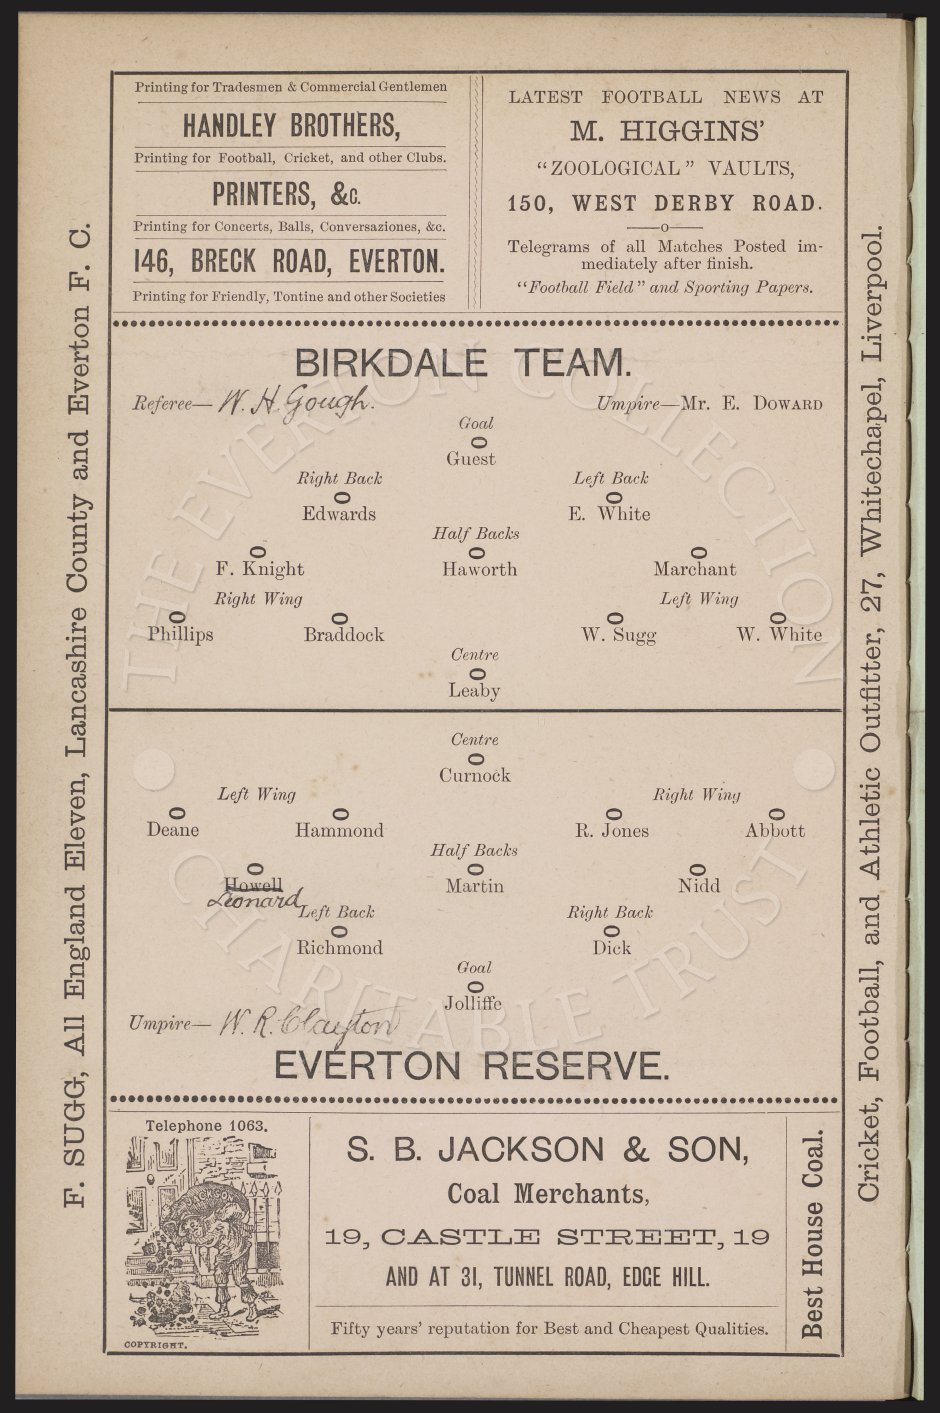 Printing for Tradesmen & Commercial Gentlemen
HANDLEY BROTHERS,
Printing for Football, Cricket, and other Clubs.
PRINTERS, &c.
Printing for Concerts, Balls, Conversaziones, &c.
146, BRECK ROAD, EVERTON.
Printing for Friendly, Tontine and other Societies
LATEST FOOTBALL NEWS AT
M. HIGGINS'
"ZOOLOGICAL" VAULTS,
150, WEST DERBY ROAD.
Telegrams of all Matches Posted im-
mediately after finish.
"Football Field" and Sporting Papers.
F. SUGG, All England Eleven, Lancashire County and Everton F. C.
BIRKDALE TEAM.
Referee— W. H. Gough.
Umpire—Mr. E. DOWARD
Goal
Guest
Right Back
Left Back
Edwards
E. White
Half Backs
F. Knight
Haworth
Marchant
Right Wing
Left Wing
Phillips
Braddock
W. Sugg
W. White
Centre
Leaby
Centre
Curnock
Left Wing
Right Wing
Deane
Hammond
R. Jones
Abbott
Half Backs
Howell
Martin
Nidd
Leonard
Left Back
Right Back
Richmond
Dick
Goal
Jolliffe
Umpire— W. R. Clayton
EVERTON RESERVE.
Cricket, Football, and Athletic Outfitter, 27, Whitechapel, Liverpool.
THE EVERTON COLLECTION
CHARITABLE TRUST
Telephone 1063.
JACKSON
COPYRIGHT.
S. B. JACKSON & SON,
Coal Merchants,
19, CASTLE STREET, 19
AND AT 31, TUNNEL ROAD, EDGE HILL.
Fifty years' reputation for Best and Cheapest Qualities.
Best House Coal.